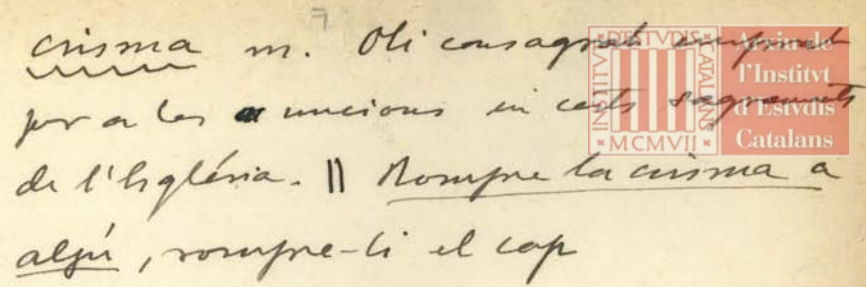 crisma m. Oli consagrat emprat
per a les uncions en certs sagraments
de l'Església. || Rompre la crisma a
algú, rompre-li el cap
INSTITVT D'ESTVDIS CATALANS
MCMVII
Arxiu de
l'Institvt
d'Estvdis
Catalans